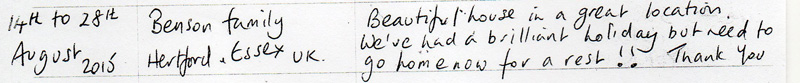 14th to 28th Benson family Beautiful house in a great location.
August 2015 Hertford, Essex UK. We've had a brilliant holiday but need to
go home now for a rest !! Thank you